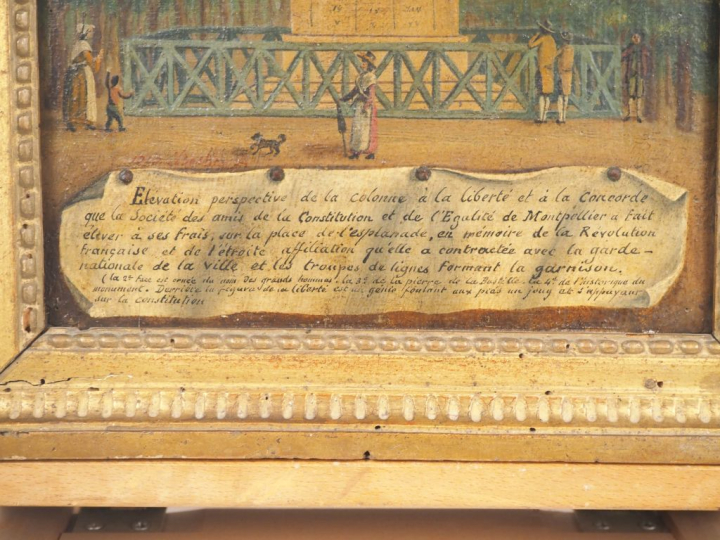 Elevation perspective de la colonne à la liberté et à la Concorde
que la Société des amis de la Constitution et de l'Egalité de Montpellier a fait
élever à ses frais, sur la place de l'esplanade, en mémoire de la Révolution
française et de l'étroite affiliation qu'elle a contractée avec la garde-
nationale de la ville et les troupes de lignes formant la garnison.
(la 2e face est ornée du nom des grands hommes. la 3e de la pierre de la Bastille. la 4e de l'historique du
monument. Derrière la figure de la liberté est un génie foulant aux pieds un joug et s'appuyant
sur la constitution